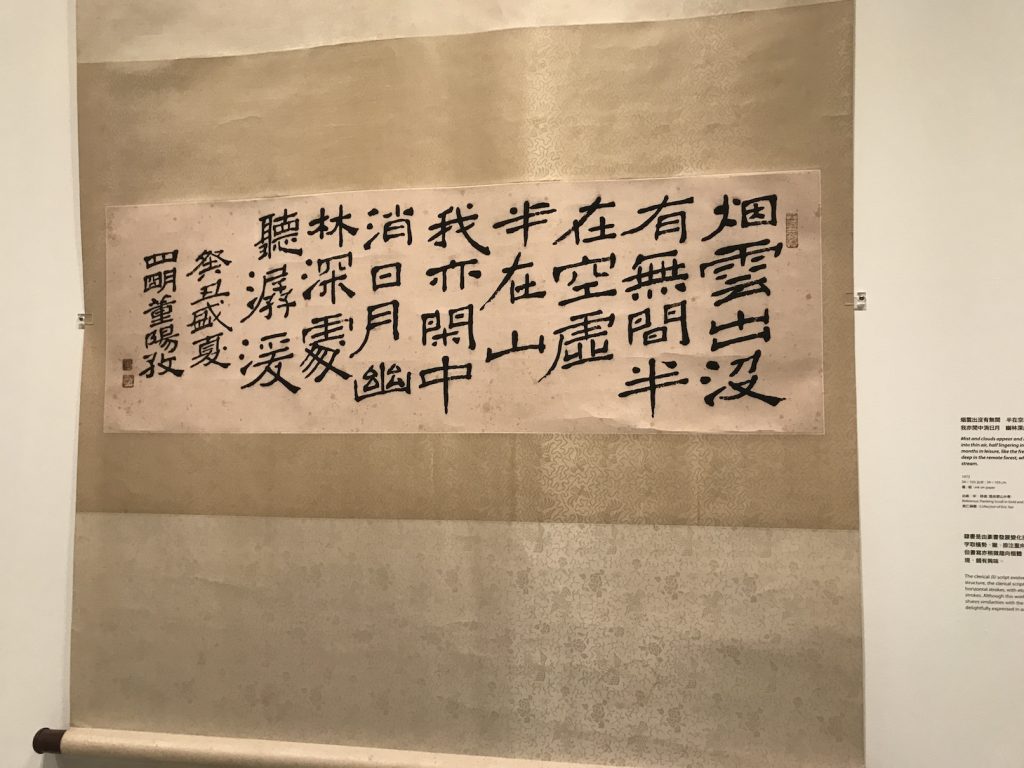 烟雲出没
有無間半
在空虛
半在山
我亦閑中
消日月幽
林深處
聽潺湲
癸丑盛夏
四明董陽孜
烟雲出沒有無間 半在空
我亦閒中消日月 幽林深
Mist and clouds appear and
into thin air, half lingering in
months in leisure, like the
deep in the remote forest,
stream.
1973
ink on paper
隸書是由篆書發展變化
字取橫勢
The clerical (li) script
structure, the clerical script
horizontal strokes, with
strokes. Although this
shares similarities with the
delightfully expressed in